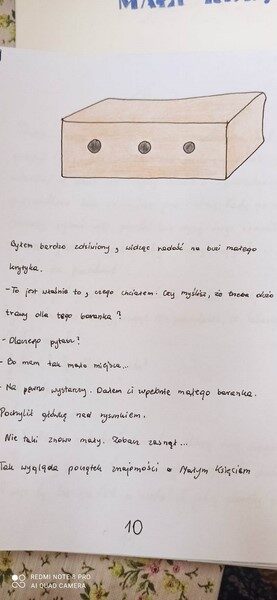 Byłem bardzo zdziwiony, widząc radość na buzi małego
krytyka.
- To jest właśnie to, czego chciałem. Czy myślisz, że trzeba dużo
trawy dla tego baranka?
- Dlaczego pytasz?
- Bo mam tak mało miejsca...
- Na pewno wystarczy. Dałem ci zupełnie małego baranka.
Pochylił główkę nad rysunkiem.
Nie taki znowu mały. Zobacz zasnął...
Tak wygląda początek znajomości z Małym Księciem
10
REDMI NOTE 8 PRO
AI QUAD CAMERA